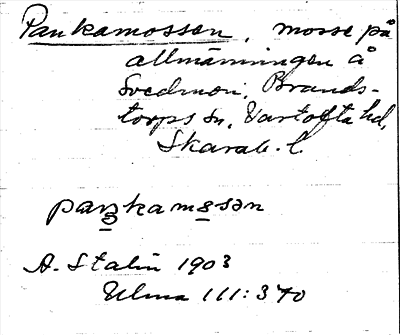 Pankamossen, mosse på
allmänningen å
Svedmon, Brands-
torps sn, Vartofta hd,
Skarab. l.
paŋkamɷsən
A. Stalin 1903
Ulma 111:370